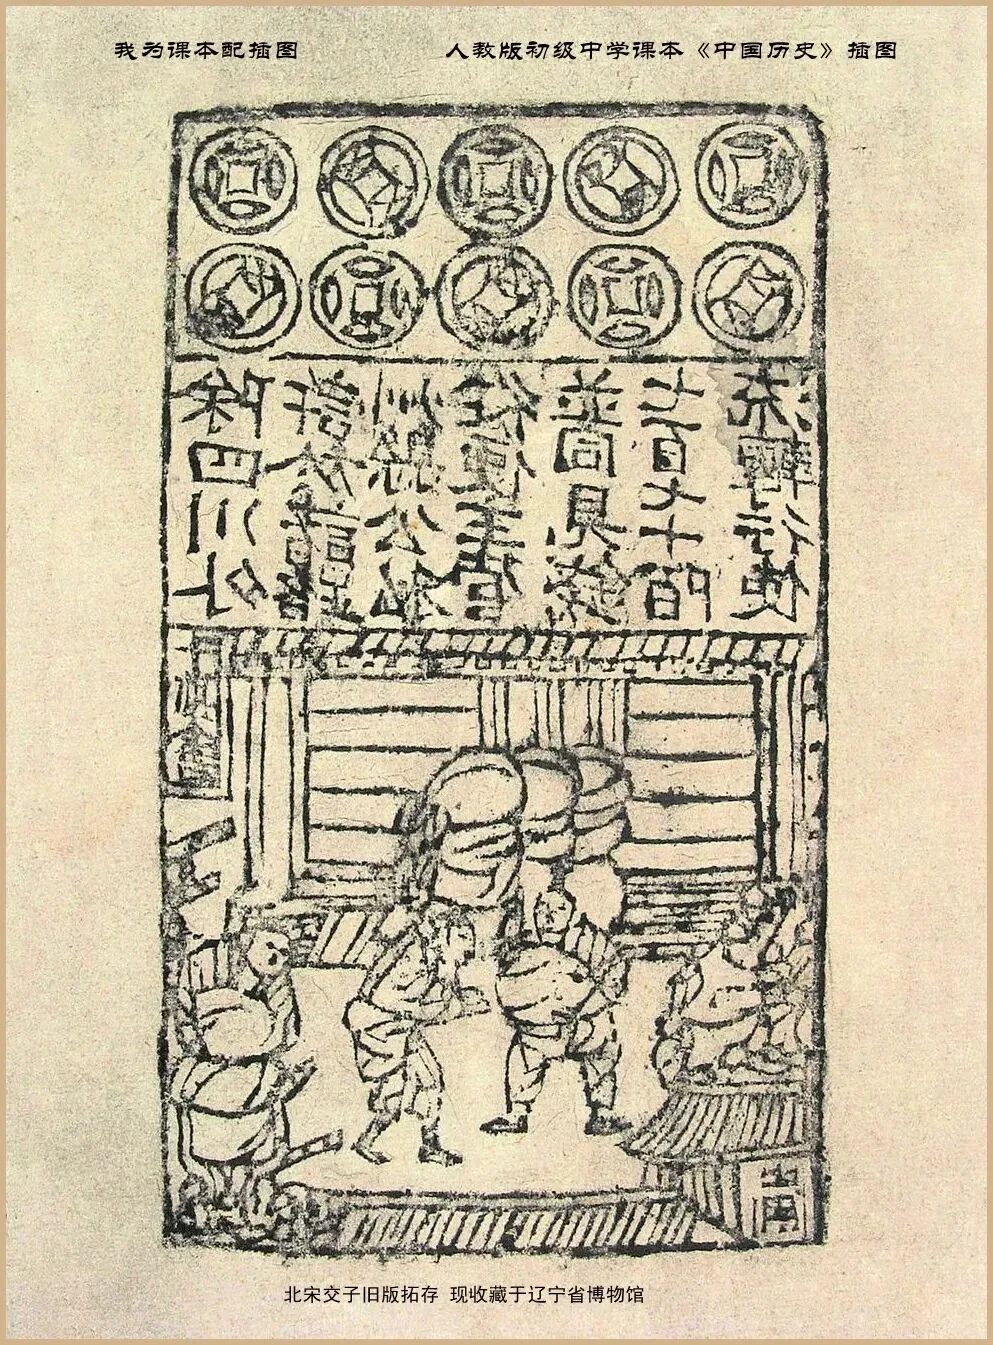 我为课本配插图
人教版初级中学课本《中国历史》插图
除四川外
許於諸路
州縣公私
從便主管
並同見錢
七百七十陌
流轉行使
北宋交子旧版拓存 现收藏于辽宁省博物馆